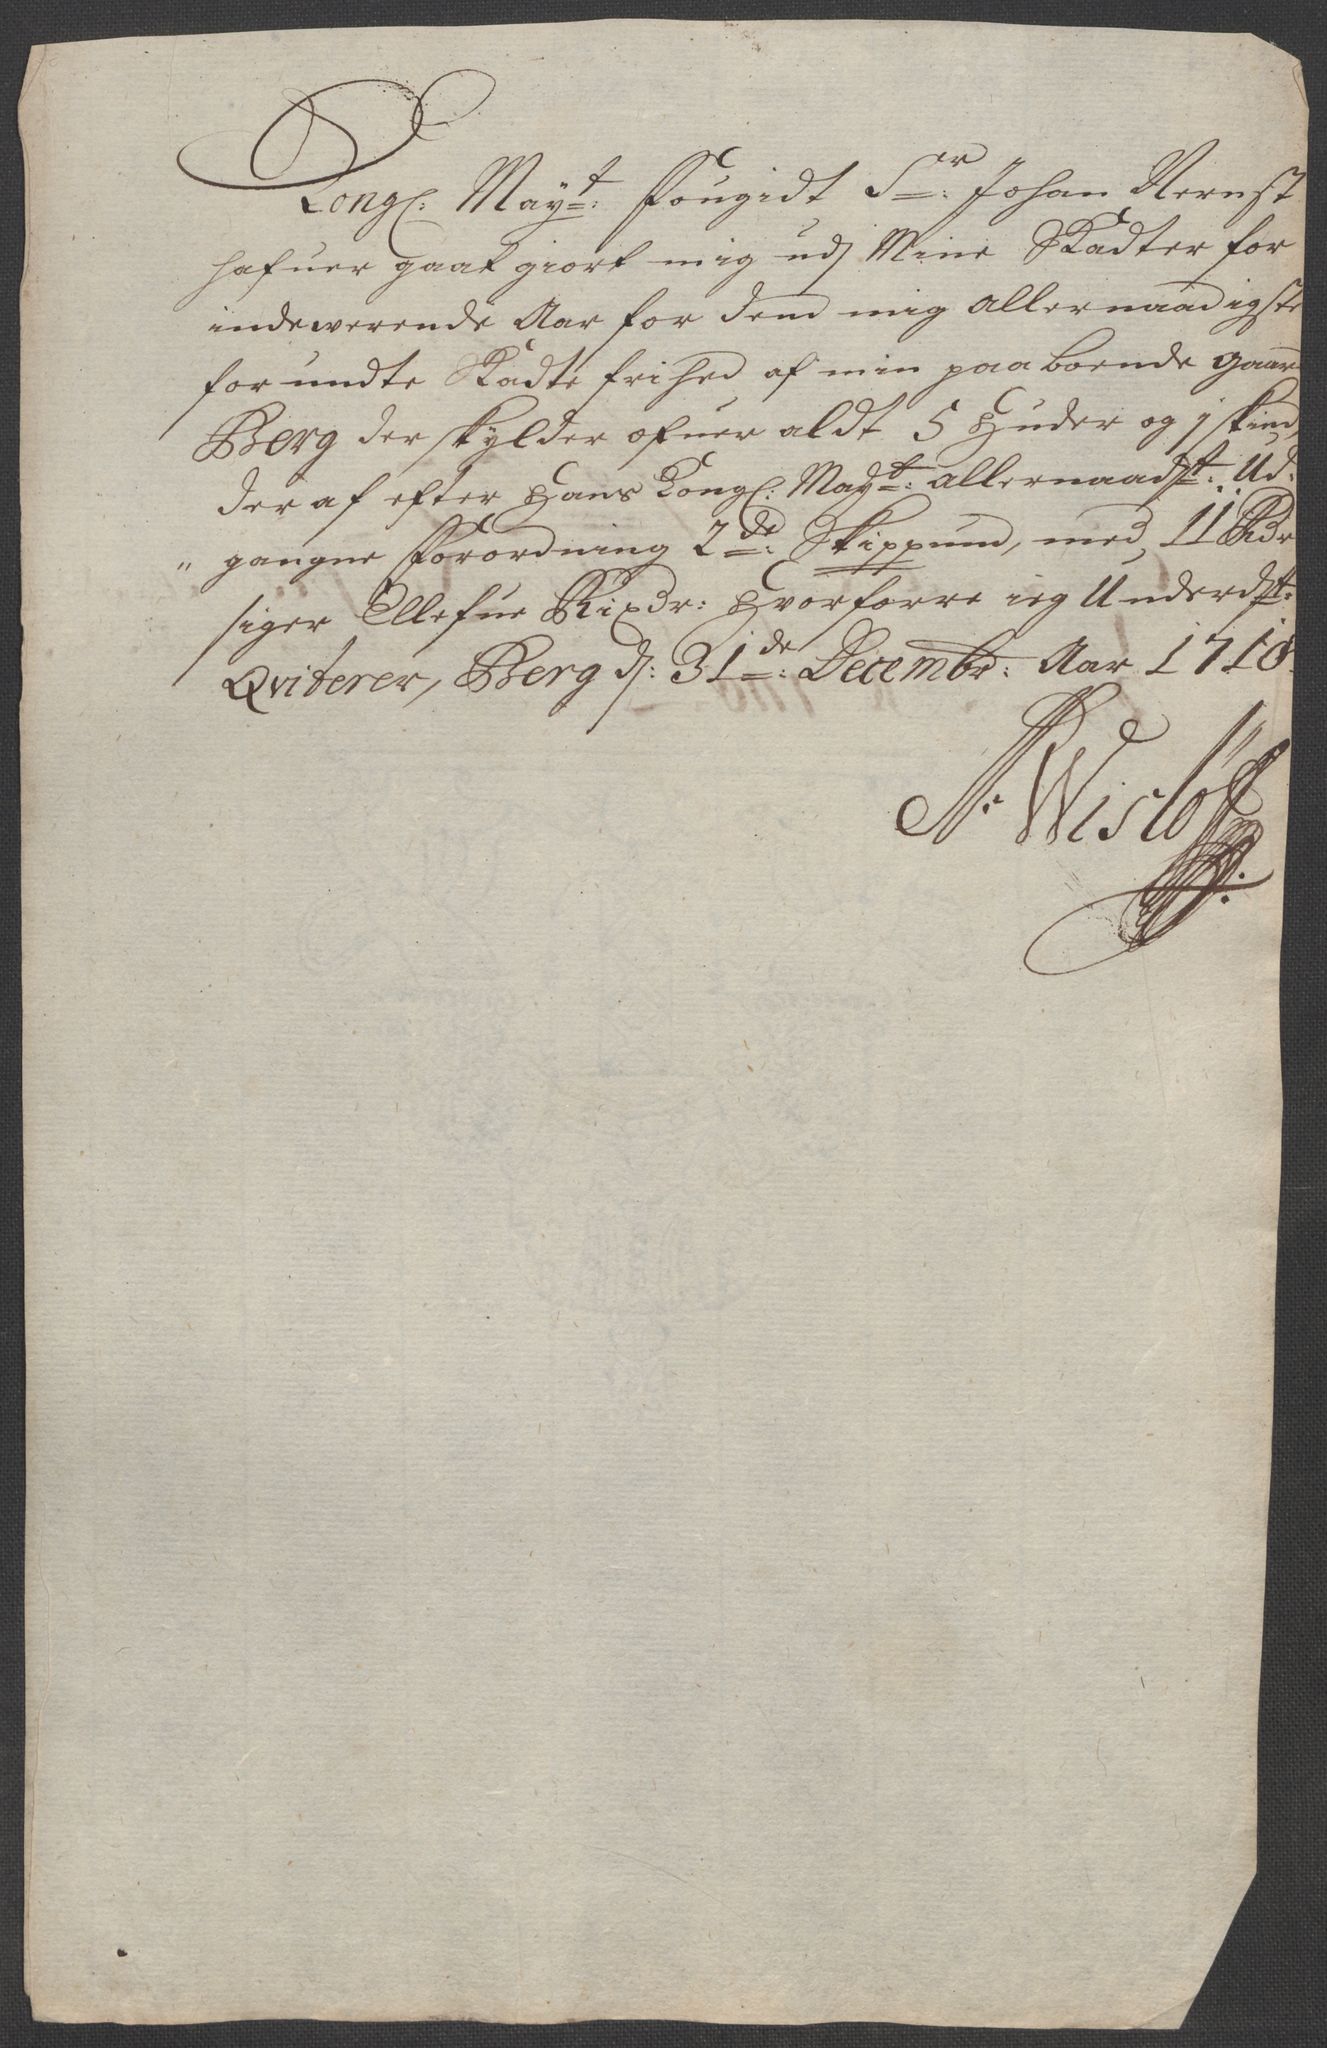 Kongl: Mayt: Fougidt Sr: Johan Nernst
hafuer gaat giort mig udj Mine Skadter for
indewerende Aar for dend mig allernaadigste
forundte Skadte frihed af min paaboende gaard
Berg der skylder ofuer aldt 5 Huder og j skind,
der af efter Hans Kongl: Mayt: allernaadst: Ud-
gangne Forordning 2de: Skippund, med 11 Rdr
siger Ellefue Rixdr: Hvorforre ieg Underdst:
Qviterer, Berg d: 31de: Decembr: Aar 1710
Wislöff